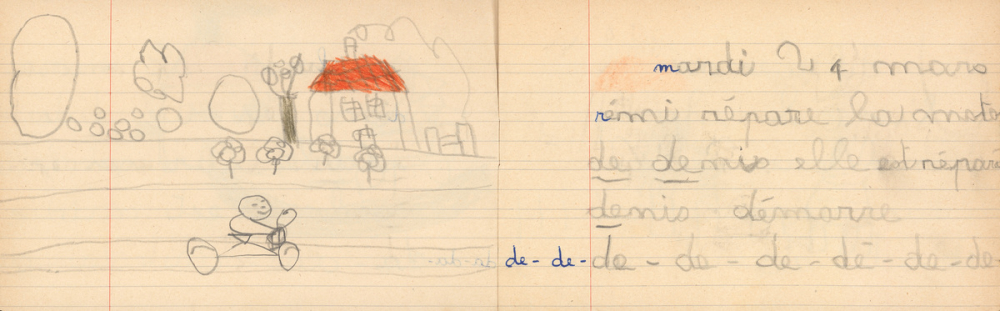 mardi 24 mars
rémi répare la moto
de denis elle est réparé
denis démarre
de - de - de - de - de - de - de - de